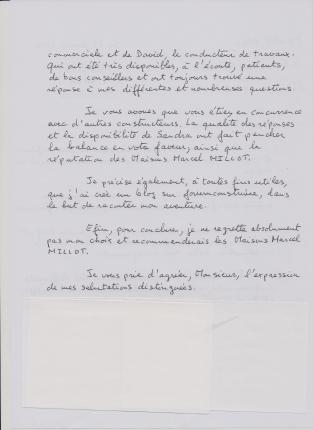 commerciale et de David, le conducteur de travaux.
Qui ont été très disponibles, à l'écoute, patients,
de bons conseillers et ont toujours trouvé une
réponse à mes différentes et nombreuses questions.
Je vous avoues que vous étiez en concurrence
avec d'autres constructeurs. La qualité des réponses
et la disponibilité de Sandra ont fait pencher
la balance en votre faveur, ainsi que la
réputation des Maisons Marcel MILLOT.
Je précise également, à toutes fins utiles,
que j'ai crée un blog sur forumconstruire, dans
le but de raconter mon aventure.
Efin, pour conclure, je ne regrette absolument
pas mon choix et recommenderais les Maisons Marcel
MILLOT.
Je vous prie d'agréer, Monsieur, l'expression
de mes salutations distinguées.